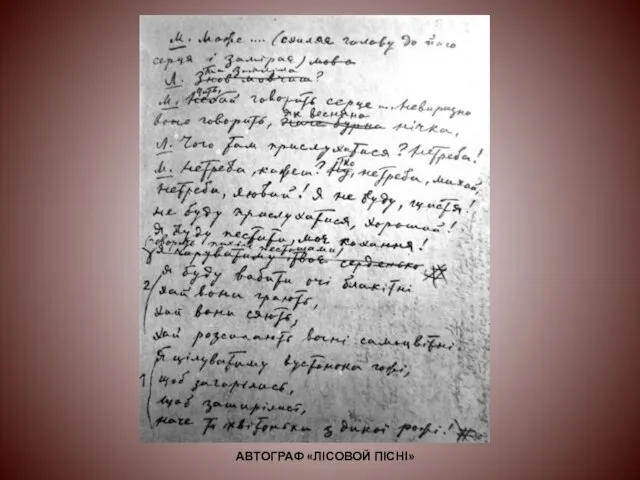 М. Може .... (схиляє голову до його
серця і замірає) мов
Л. Знов мовчиш? Ти заснула
М. Цить, Нехай говорить серце ... Невиразно
воно говорить, наче бурна як весняна нічка.
Л. Чого там прислухатися? Нетреба!
М. Нетреба, кажеш? То, нетреба, милий,
нетреба, любий! Я не буду, щастя!
не буду прислухатися, хороший!
Я буду пестити, моє кохання!
Я чаруватиму твоє серденько
Я буду вабити очі блакитні
2 хай вони грають,
хай вони сяють,
хай розсипають вогні самоцвітні.
Я цілуватиму вустонька гожі,
1 щоб загорілись,
щоб зашарілись,
наче ті квітоньки з дикої рожі!
АВТОГРАФ «ЛІСОВОЙ ПІСНІ»